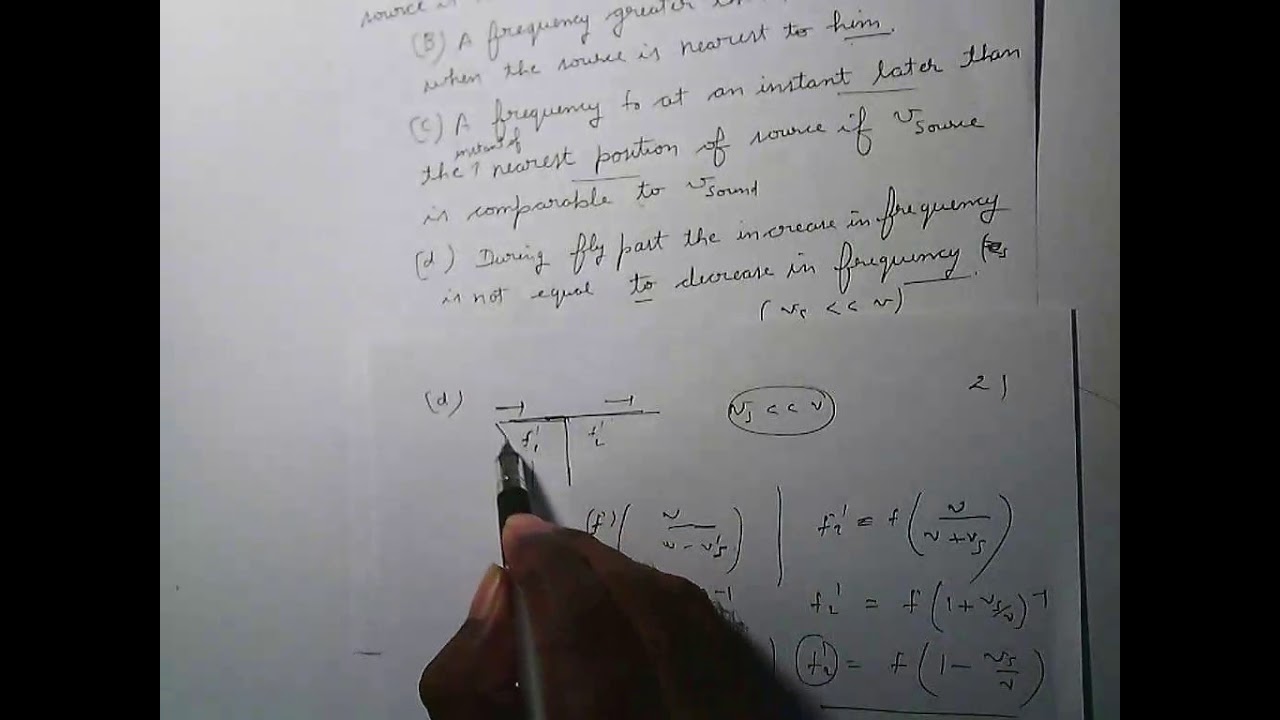 source is
(B) A frequency greater
when the source is nearest to him.
(C) A frequency fo at an instant later than
instant of
the ↑ nearest position of source if vsource
is comparable to vsound
(d) During fly part the increase in frequency
is not equal to decrease in frequency
(vs << v)
(d)
vs << v
21
f1' f2'
(f) (v / v - vs) | f2' = f (v / v + vs)
-1 f2' = f (1 + vs/v)-1
f2' = f (1 - vs/v)